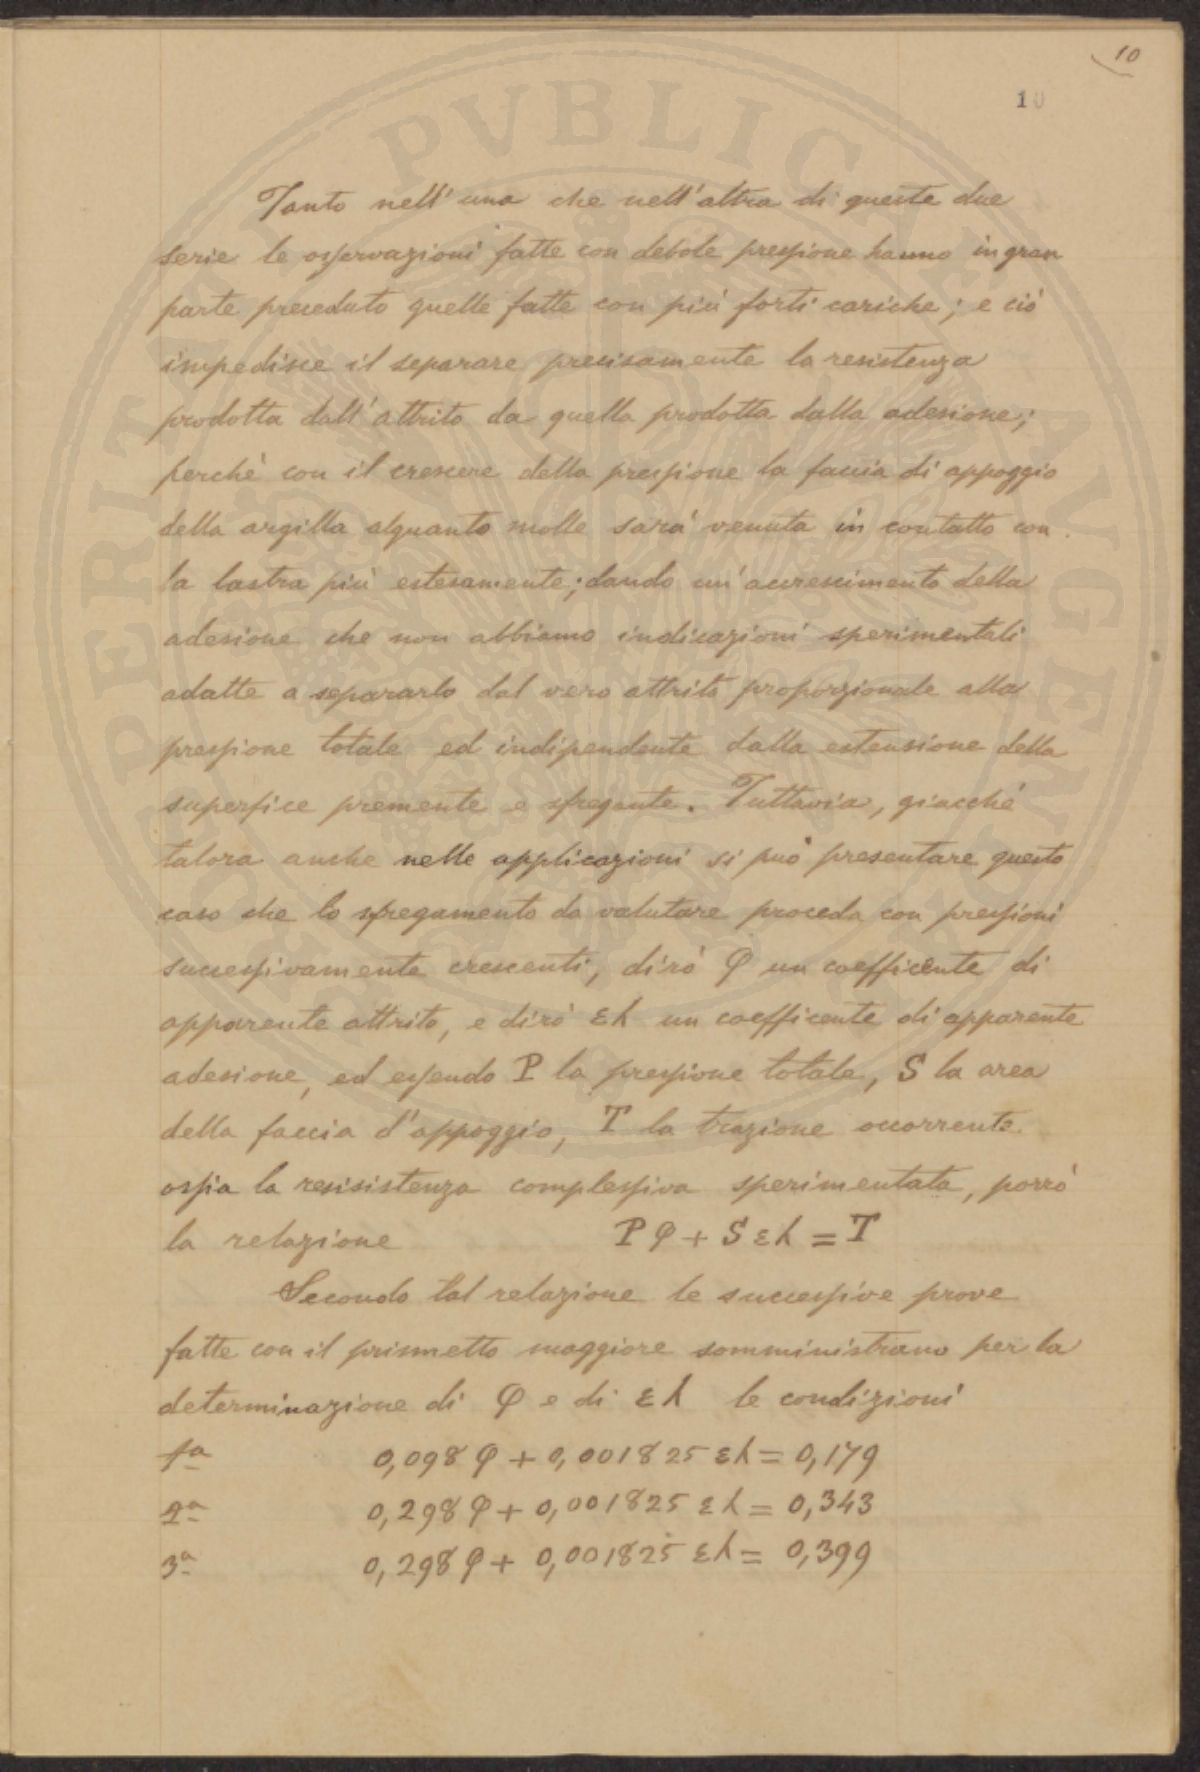 10
10
Tanto nell'una che nell'altra di queste due
serie le osservazioni fatte con debole pressione hanno in gran
parte preceduto quelle fatte con più forti cariche; e ciò
impedisce il separare precisamente la resistenza
prodotta dall'attrito da quella prodotta dalla adesione;
perchè con il crescere della pressione la faccia di appoggio
della argilla alquanto molle sarà venuta in contatto con
la lastra più estesamente; dando un'accrescimento della
adesione che non abbiamo indicazioni sperimentali
adatte a separarlo dal vero attrito proporzionale alla
pressione totale ed indipendente dalla estensione della
superfice premente e sfregante. Tuttavia, giacchè
talora anche nelle applicazioni si può presentare questo
caso che lo sfregamento da valutare proceda con pressioni
successivamente crescenti, dirò φ un coefficiente di
apparente attrito, e dirò ελ un coefficente di apparente
adesione, ed essendo P la pressione totale, S la area
della faccia d'appoggio, T la trazione occorrente
ossia la resisistenza complessiva sperimentata, porrò
la relazione Pφ + Sελ = T
Secondo tal relazione le successive prove
fatte con il prismetto maggiore somministrano per la
determinazione di φ e di ελ le condizioni
1a 0,098 φ + 0,001825 ελ = 0,179
2a 0,298 φ + 0,001825 ελ = 0,343
3a 0,298 φ + 0,001825 ελ = 0,399
PERITIAE PVBLICAE AVGENDAE